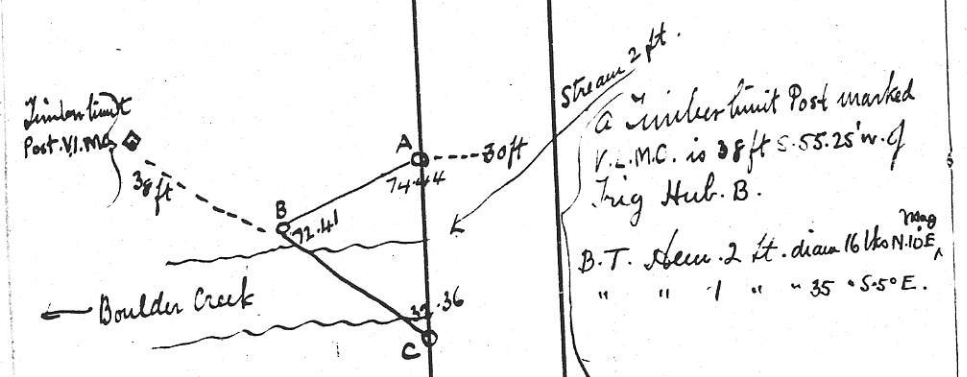 Timber limit
Post. V.I.Mc
38 ft
A
30 ft
74.44
B
72.41
Boulder Creek
32.36
C
Stream 2 ft.
A Timber limit Post marked
V.L.M.C. is 38 ft S.55.25' W. of
Trig Hub. B.
Mag
B.T. Hem. 2 ft. diam 16 lks N.10 E.
" " 1 " " 35 " S.5° E.